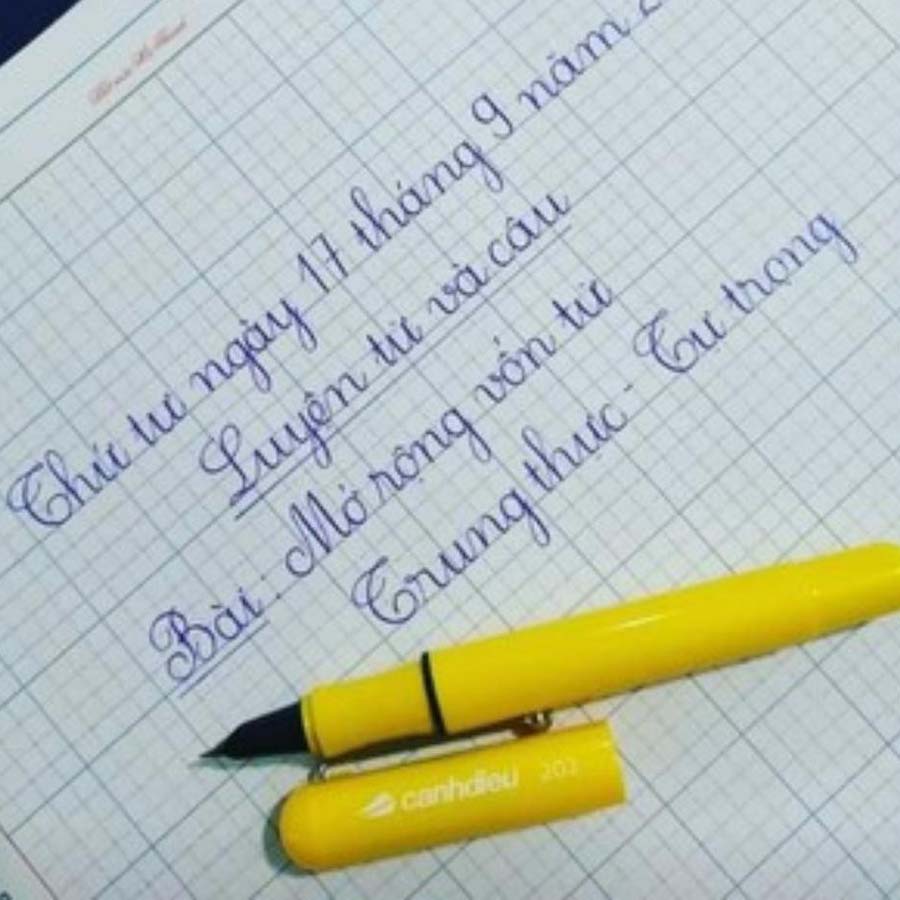 Thứ tư ngày 17 tháng 9 năm 2
Luyện từ và câu
Bài: Mở rộng vốn từ
Trung thực - Tự trọng
canhdieu 203